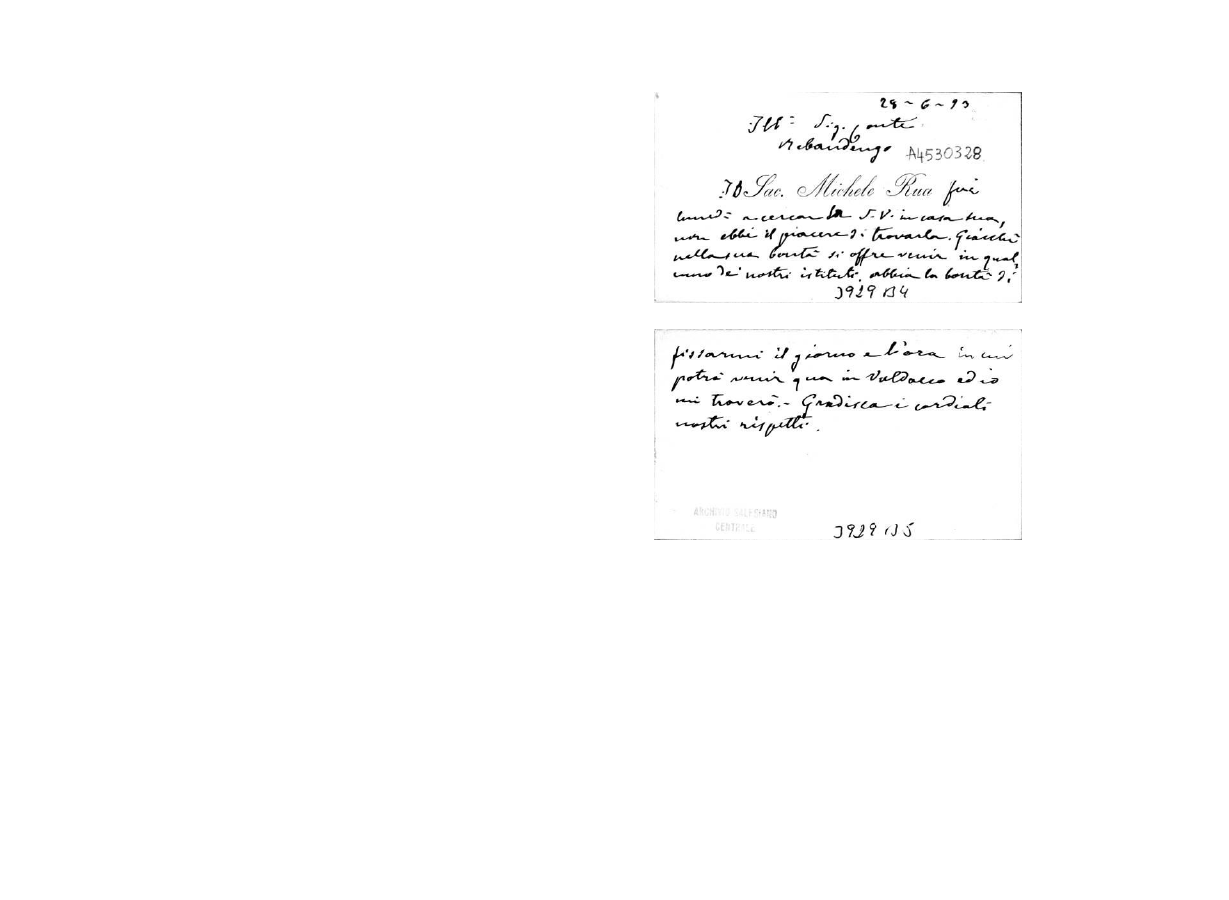 28-6-93
Ill: Sig. Conte
Rebaudengo A4530328
Il Sac. Michele Rua fui
lunedì a cercar la S.V. in casa sua,
non ebbi il piacere di trovarla. Giacchè
nella sua bontà si offre venir in qual,
cuno dei nostri istituti, abbia la bontà di
3929 B4
fissarmi il giorno e l'ora in cui
potrà venir qua in Valdocco ed io
mi troverò.- Gradisca i cordiali
nostri rispetti.
ARCHIVIO SALESIANO
CENTRALE
3929 B5